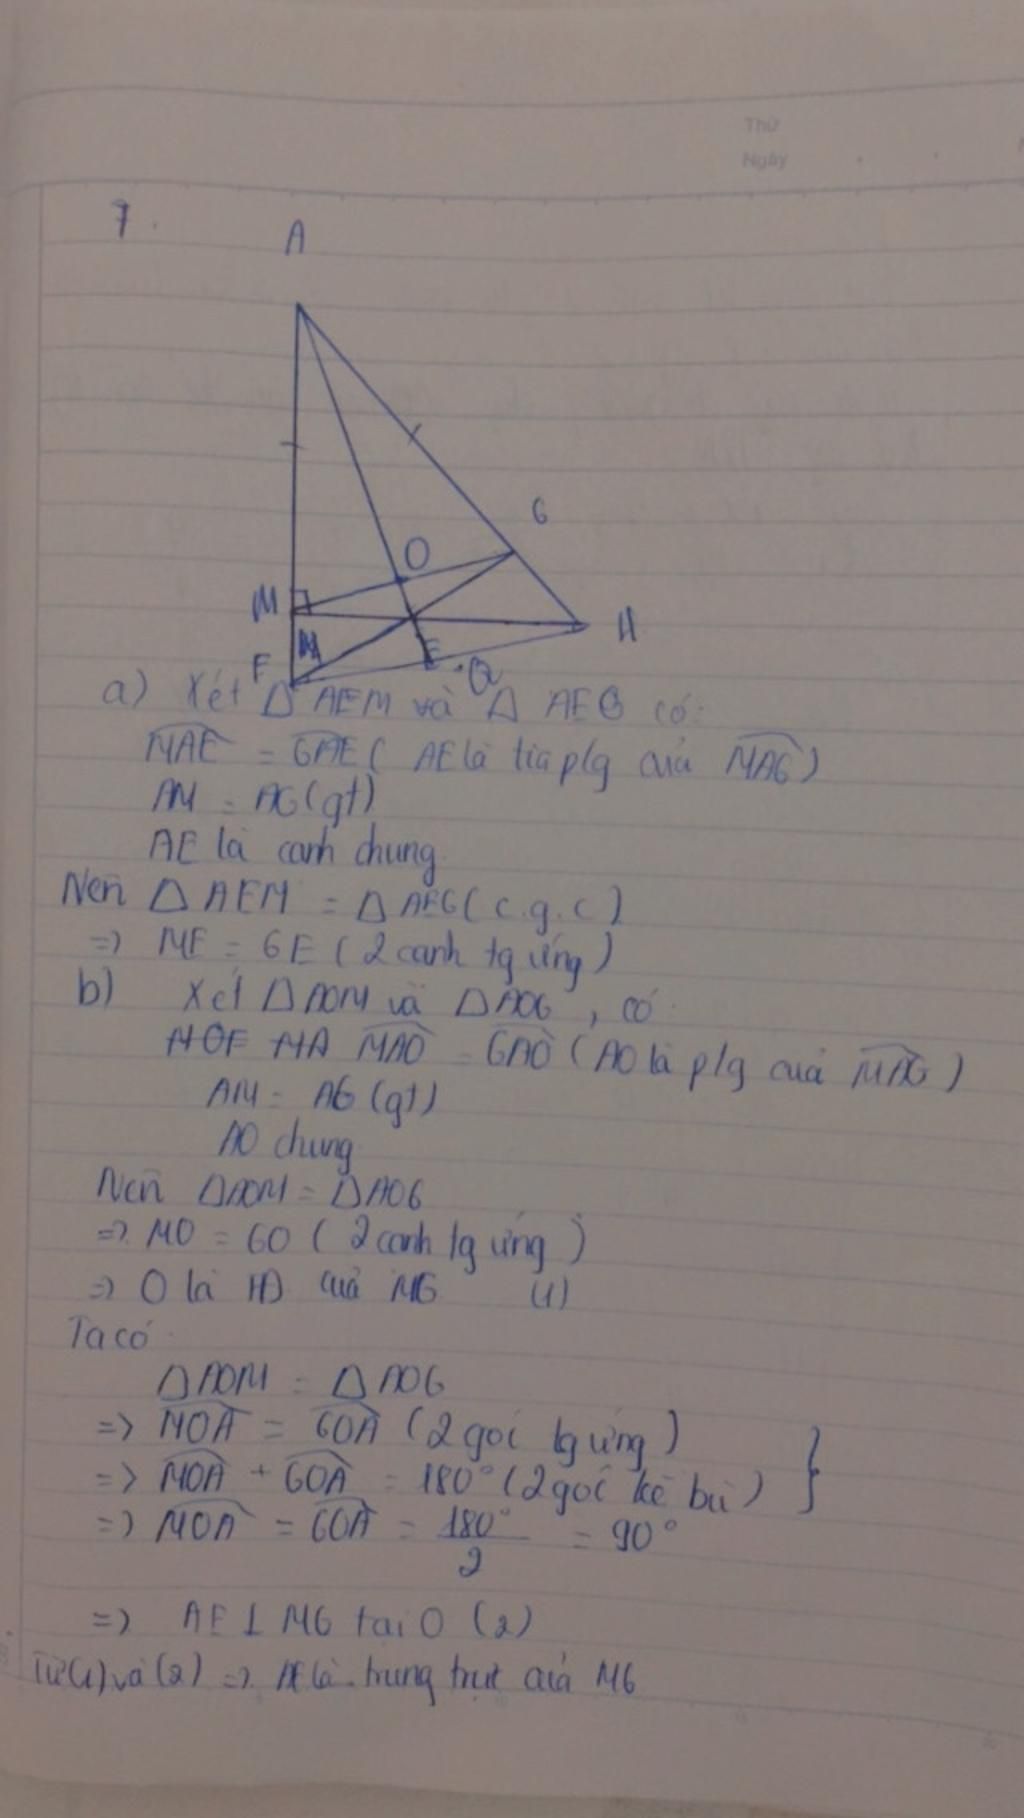 Thứ
Ngày
7.
A
G
O
M
H
F
E
Q
a) Xét Δ AEM và Δ AEG có:
MAE = GAE ( AE là tia p/g của MAG )
AM = AG (gt)
AE là cạnh chung
Nên Δ AEM = Δ AEG ( c.g.c )
=> ME = GE ( 2 cạnh tg ứng )
b) Xét Δ AOM và Δ AOG , có:
MAO = GAO ( AO là p/g của MAG )
AM = AG (gt)
AO chung
Nên Δ AOM = Δ AOG
=> MO = GO ( 2 cạnh tg ứng )
=> O là TĐ của MG (1)
Ta có:
Δ AOM = Δ AOG
=> MOA = GOA ( 2 góc tg ứng )
=> MOA + GOA = 180° ( 2 góc kề bù )
=> MOA = GOA = 180°/2 = 90°
=> AE ⊥ MG tại O (2)
Từ (1) và (2) => AE là trung trực của MG